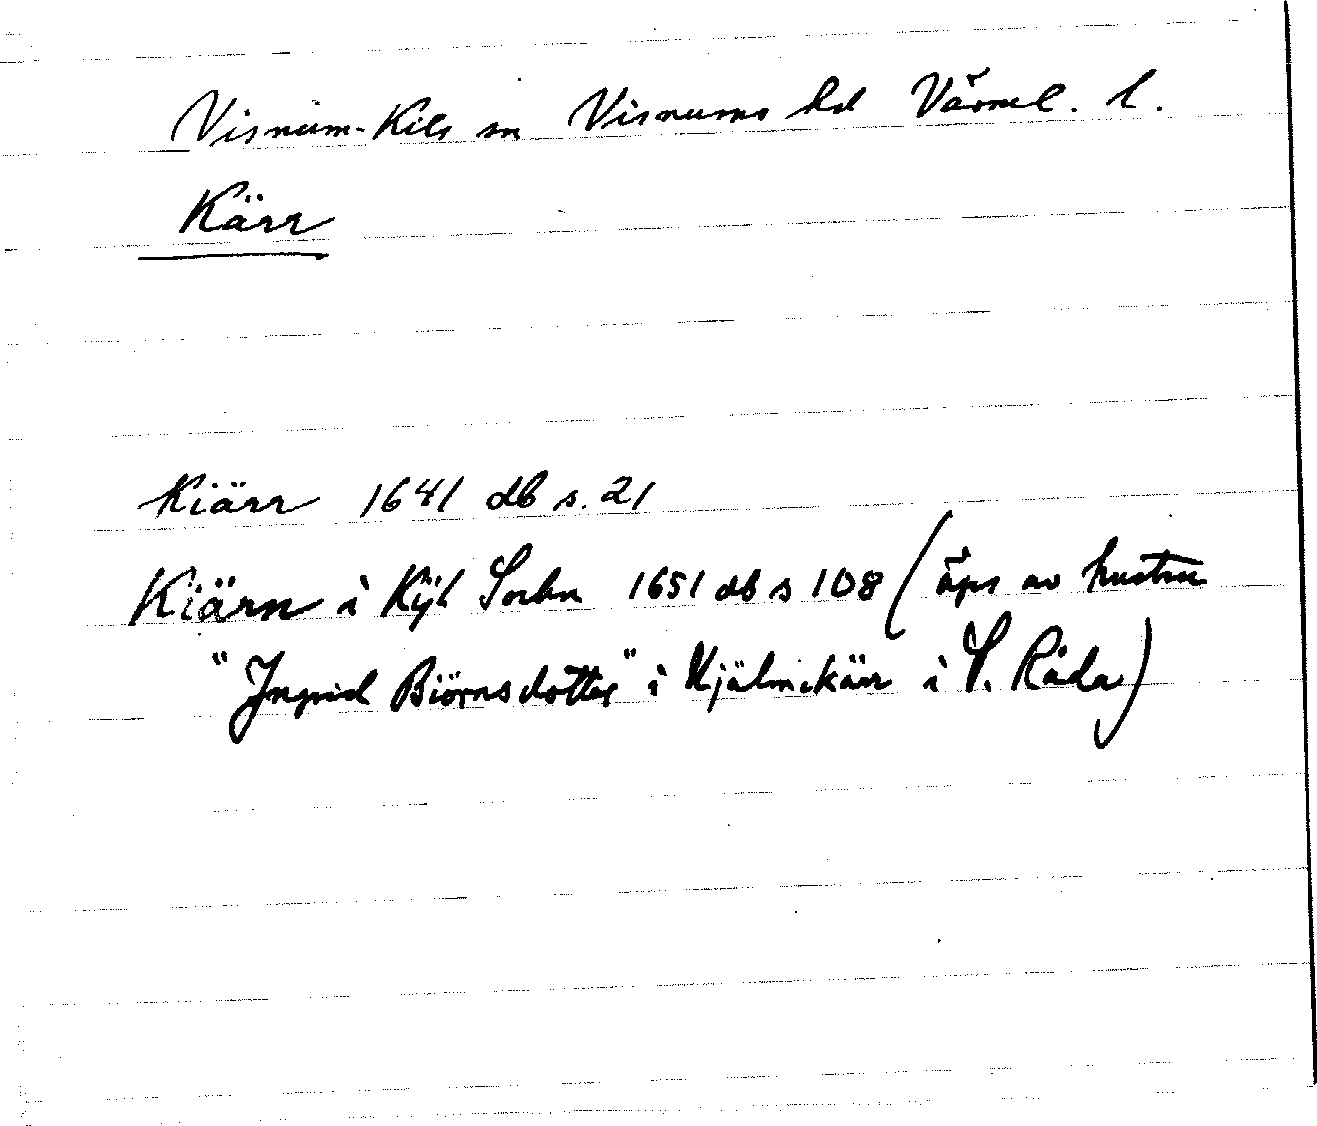 Visnum-Kils sn Visnums hd Värml. l.
Kärr
Kiärr 1641 db s. 21
Kiärn i Kijl Sochn 1651 db s 108 (äges av hustru
"Ingrid Biörnsdotter" i Hjälmekärr i S. Råda)